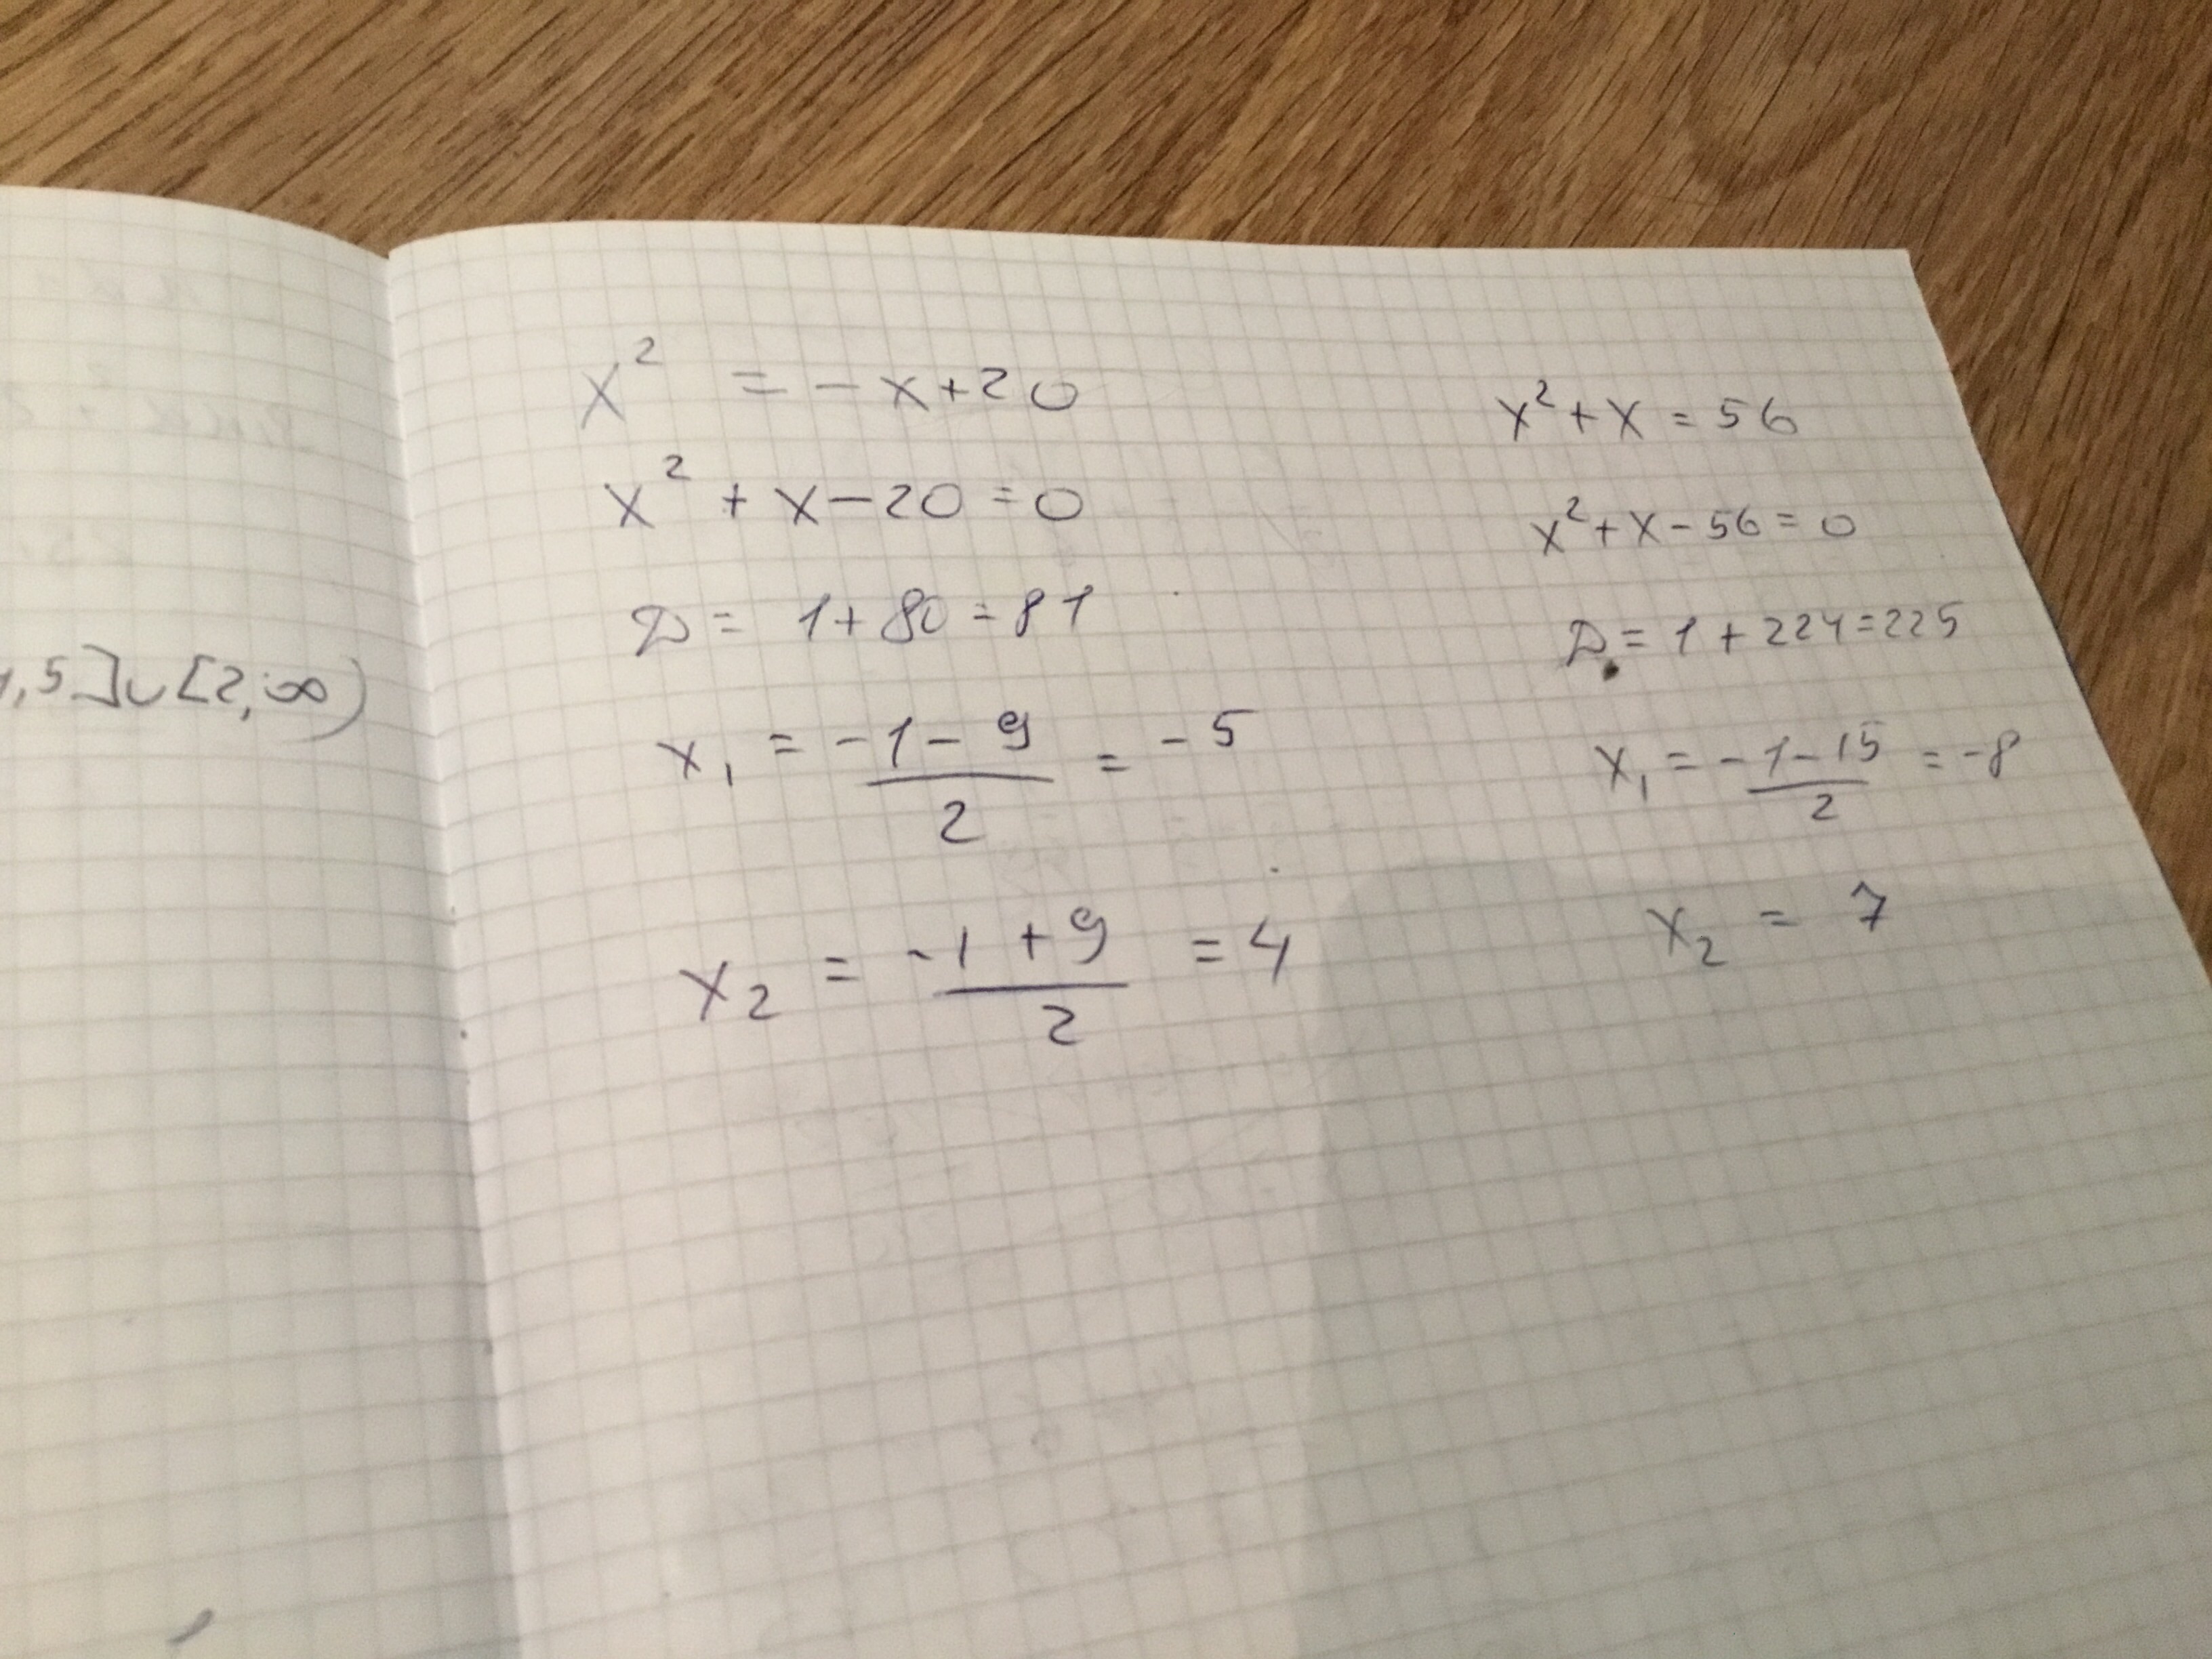 ,5]∪[2,∞)
x² = -x+20
x² + x-20=0
D = 1+80=81
x₁ = (-1-9)/2 = -5
x₂ = (-1+9)/2 = 4
x²+x=56
x²+x-56=0
D=1+224=225
x₁ = (-1-15)/2 = -8
x₂ = 7